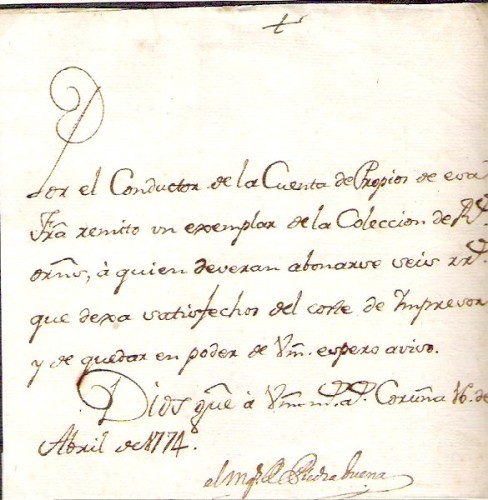 +
Por el Conductor de la Cuenta de Propios de esa
Jrã remito vn exemplar de la Coleccion de Rs.
orns, à quien deveran abonarse seis rrs.
que dexa satisfechos del coste de Impresor
y de quedar en poder de Vm. espero aviso.
Dios gue à Vm ms. as. Coruña 16. de
Abril de 1774.
el Mqs. de Piedra buena